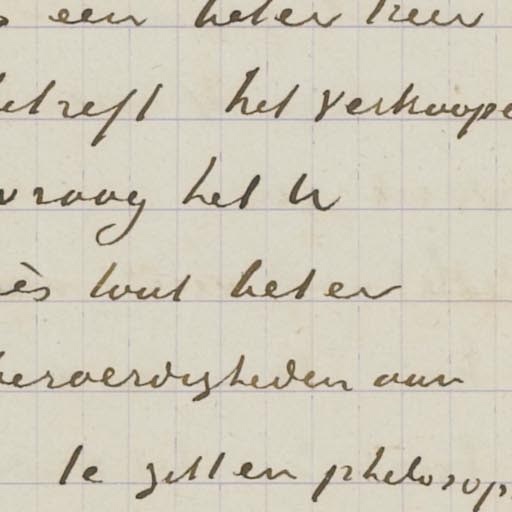 een beter keer
betreft het verkoope
vraag het U
ès tout beter
beroerdigheden aan
te zitten philosop